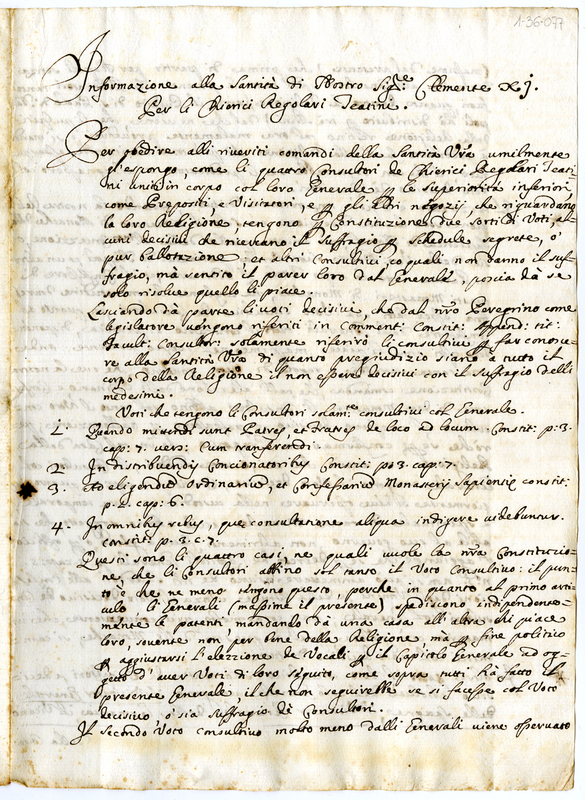 1-36-077
Informazione alla Santità di Nostro Sig.re Clemente XJ.
Per li Chierici Regolari Teatini.
Per obedire alli riveriti comandi della Santità Vra umilmente
gl'espongo, come li quattro Consultori de Chierici Regolari Teati-
ni uniti in corpo col loro Generale p le Superiorità inferiori,
come Prepositi, e Visitatori, e p gli altri negozij, che riguardano
la loro Religione, tengono p Constituzione due sorti di Voti, al-
cuni decisivi che ricercano il suffragio p schedule segrete, ò
pur ballotazione: et altri Consultivi, co quali non danno il suf-
fragio, mà sentito il parer loro dal Generale, poscia dà se
solo risolve quello li piace.
Lasciando dà parte li voti decisivi, che dal nro Peregrino come
legislatore vengono riferiti in Comment: Constit: Append: tit:
facult: Consultor: solamente riferirò li consultivi p far conosce-
re alla Santità Vra di quanto pregiudizio siano à tutto il
corpo della Religione il non essere decisivi con il suffragio delli
medesimi.
Voti che tengono li Consultori solam.te consultivi col Generale.
1. Quando mittendi sunt Patres, et Fratres de loco ad locum. Constit: p: 3.
cap: 7. vers: Cum transferendi.
2. In distribuendis Concionatoribus Constit: p: 3. cap: 7.
3. Ad eligendum Ordinarium, et Confessarium Monasterij Sapientiæ constit:
p. 2. cap: 6.
4. In omnibus rebus, quæ consultatione aliqua indigere videbuntur.
constit: p. 3. c. 7.
Questi sono li quattro casi, ne quali vuole la nra Constituzio-
ne, che li Consultori abbino sol tanto il Voto Consultivo: il pun-
to è che ne meno tengono questo, perche in quanto al primo arti-
culo, li Generali (massime il presente) spediscono indipendente-
mente le patenti, mandando dà una casa all'altra chi piace
loro, sovente non per bene della Religione, mà p fine politico
p aggiustarsi l'elezzione de Vocali p il Capitolo Generale ad og-
getto d'aver Voti di loro séguito, come sopra tutti hà fatto il
presente Generale, il che non seguirebbe se si facesse col Voto
decisivo ò sia suffragio dè Consultori.
Il secondo Voto consultivo molto meno dalli Generali viene osservato